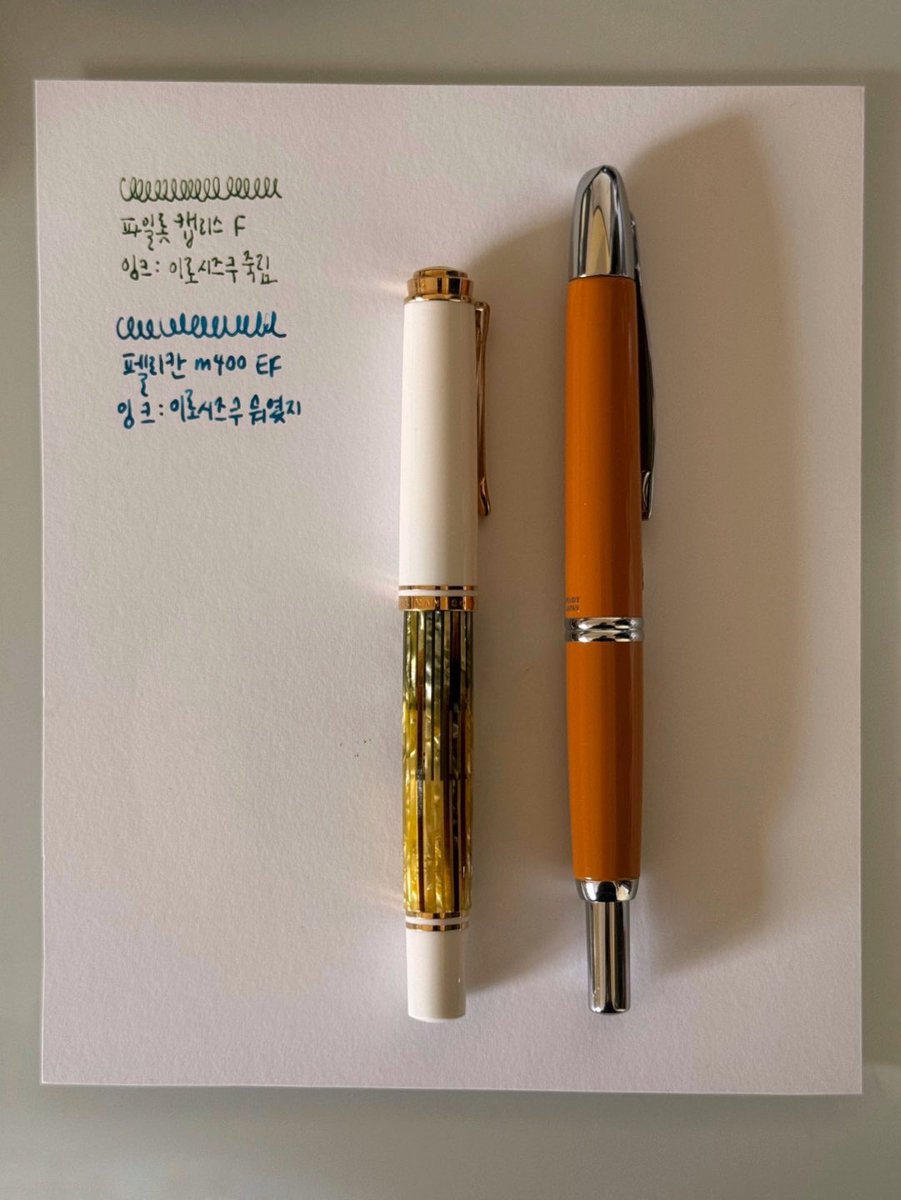 파일롯 캡리스 F
잉크: 이로시즈쿠 죽림
펠리칸 m400 EF
잉크: 이로시즈쿠